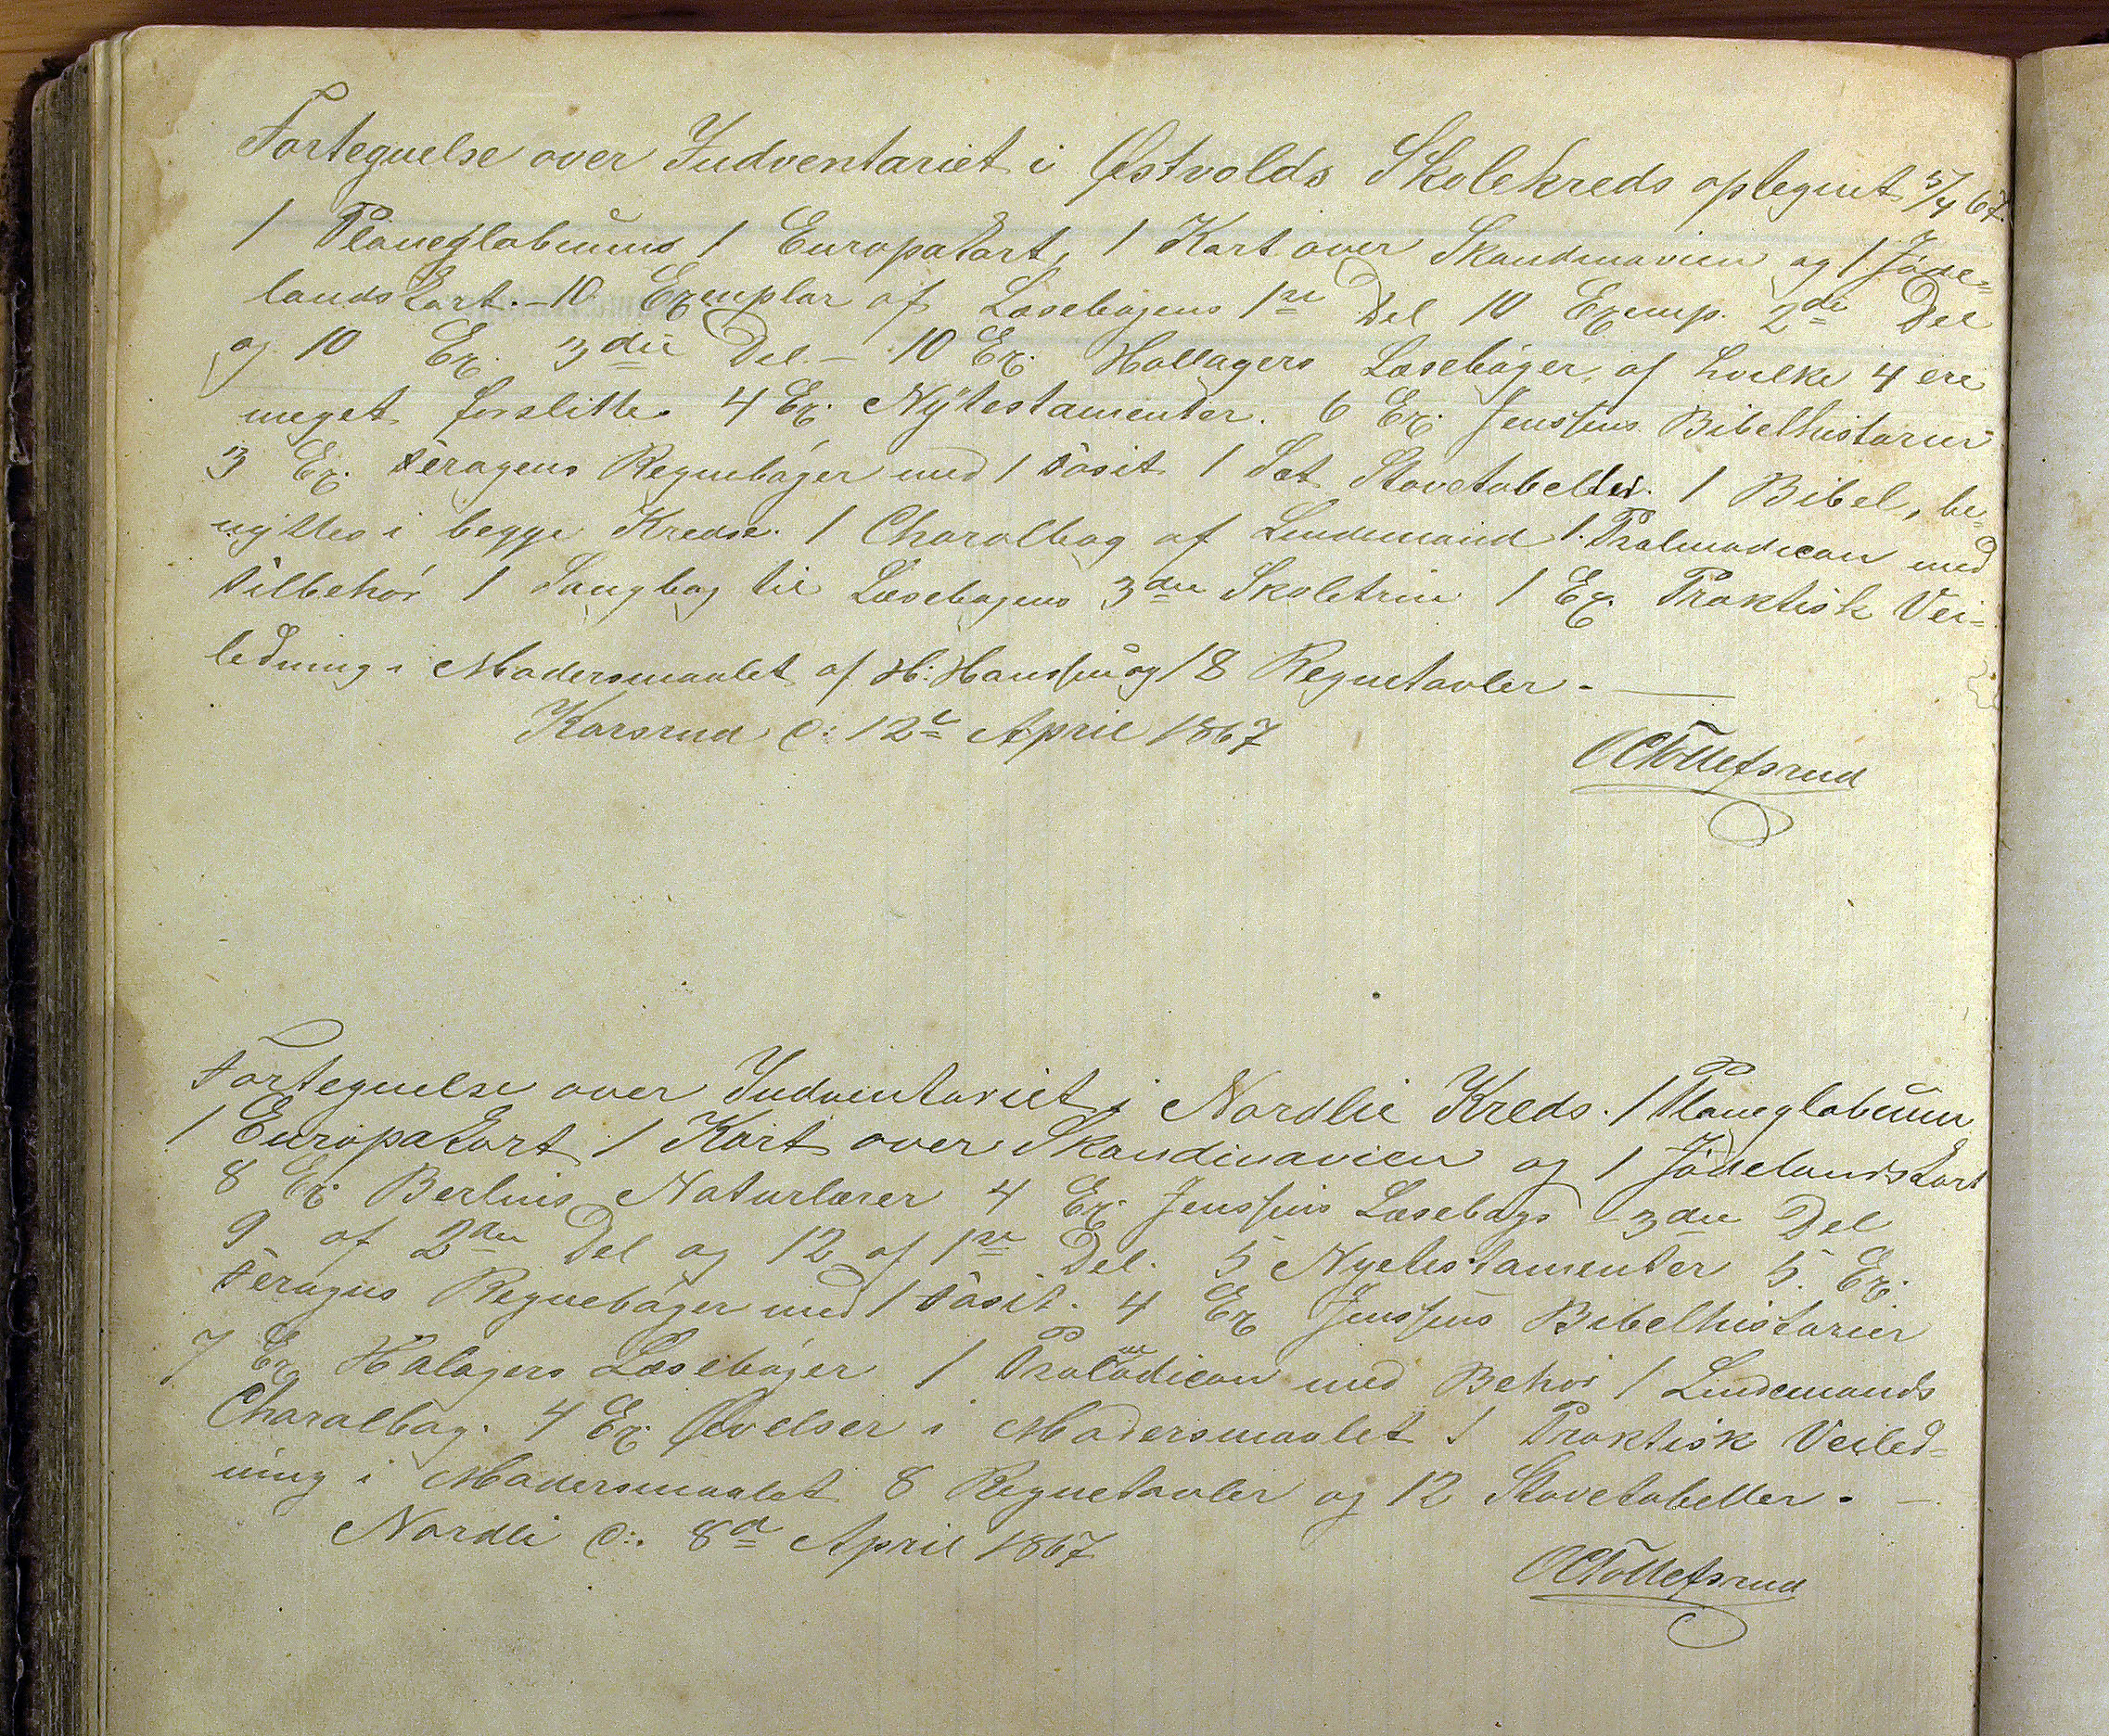 Fortegnelse over Indventariet i Østvolds Skolekreds optegnet 5/4 67.
1 Planeglobium 1 Europakart, 1 Kart over Skandinavien og 1 Jöde=
landskart. – 10 Exemplar af Læsebogens 1ste Del 10 Exemp. 2den Del
og 10 Ex. 3die Del. – 10 Ex. Hallagers Læsebøger, af hvilke 4 ere
meget forslitte. 4 Ex. Nÿtestamenter. 6 Ex. Jenssens Bibelhistorier
3 Ex. Regnebøger med 1 Fasit 1 Sæt Stavetabeller. 1 Bibel, be=
nyttes i begge Kredse. 1 Choralbog af Lindemand 1. Psalmodicon med
Tilbehör 1 Sangbog til Læsebogens 3die Skoletrin 1 Ex. Praktisk Vei=
ledning i Modersmaalet af H: Hanssen og 18 Regnetavler. —
Korsrud d: 12te April 1867
OCTollefsrud
Fortegnelse over Indventariet i Nordlie Kreds. 1 Planeglobium
1 Europakart 1 Kart over Skandinavien og 1 Jödelandskart
8 Ex. Berlins Naturlærer 4 Ex. Jenssens Læsebogs 3die Del
9 af 2den Del og 12 af 1ste Del. 5 Nyetestamenter 5. Ex.
Regnebøger med 1 Fasit. 4 Ex Jenssens Bibelhistorier
7 Ex Halagers Læsebøger 1 Psalmodicon med Behör 1 Lindemands
Choralbog. 4 Ex. Øvelser i Modersmaalet 1 Praktisk Veiled=
ning i Modersmaalet 8 Regnetavler og 12 Stavetabeller. –
Nordli d:. 8de April 1867
OCTollefsrud